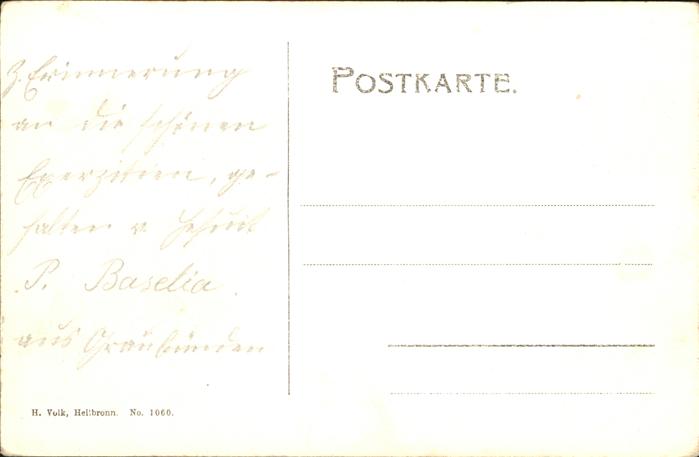 z. Erinnerung
an die schönen
Exerzitien, ge-
halten v. Jesuit
P. Baselia
aus Graubünden
POSTKARTE.
H. Volk, Heilbronn. No. 1060.